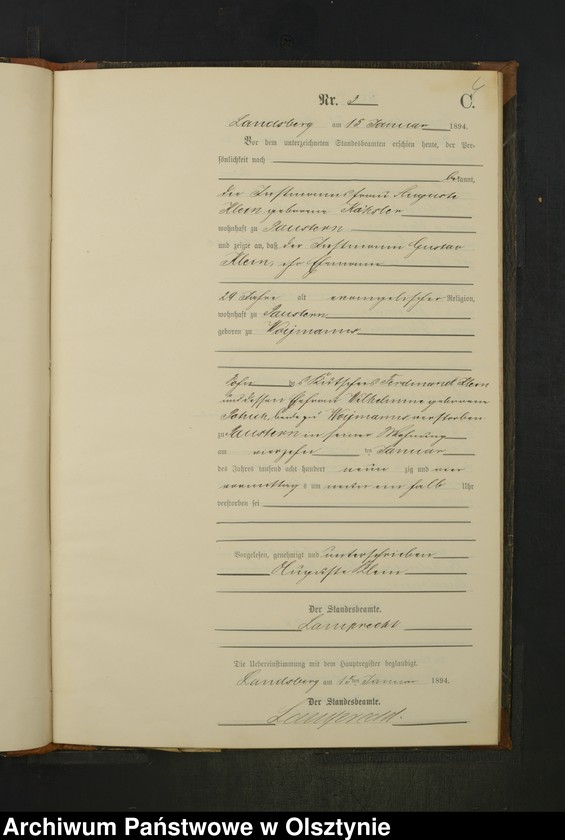 Nr. 2
C.
Landsberg am 15 Januar 1894.
Vor dem unterzeichneten Standesbeamten erschien heute, der Per-
sönlichkeit nach
bekannt,
die Instmannsfrau Auguste
Klein geborene
wohnhaft zu Paustern
und zeigte an, daß der Instmann Gustav
Klein, ihr Ehemann
29 Jahre alt evangelischer Religion,
wohnhaft zu Paustern
geboren zu Woymanns
Sohn des Kutschers Ferdinand Klein
und dessen Ehefrau Wilhelmine geborene
beide zu Woymanns verstorben
zu Paustern in seiner Wohnung
am vierzehn ten Januar
des Jahres tausend acht hundert neun zig und vier
vormittags um neun ein halb Uhr
verstorben sei
Vorgelesen, genehmigt und unterschrieben
Auguste Klein
Der Standesbeamte.
Lamprecht
Die Uebereinstimmung mit dem Hauptregister beglaubigt.
Landsberg am 15ten Januar 1894.
Der Standesbeamte.
Lamprecht.
Archiwum Państwowe w Olsztynie